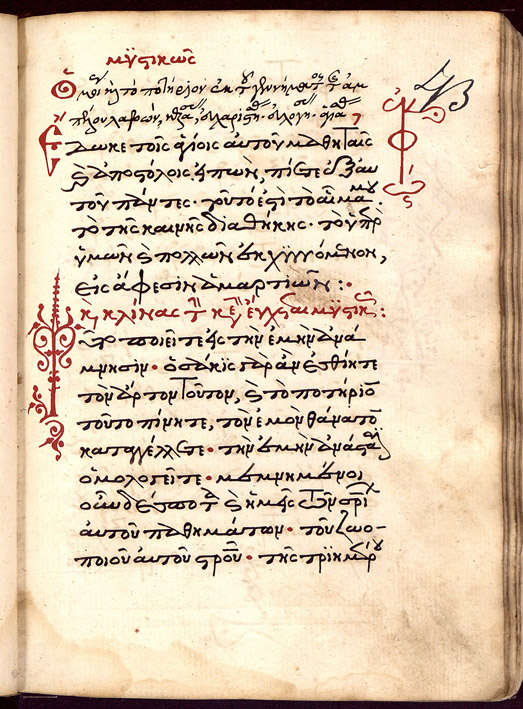 μυστικῶς
Ὁμοί(ως) κ(αὶ) τὸ ποτήριον ἐκ τοῦ γεννήματος τῆς ἀμ
πέλου λαβών, κεράσας, εὐχαριστήσ, εὐλογήσ, ἁγιάσ
Ἔδωκε τοῖς ἁγίοις αὐτοῦ μαθηταῖς
κ(αὶ) ἀποστόλοις εἰπὼν, πίετε ἐξ αὐ
τοῦ πάντες· τοῦτό ἐστι τὸ αἷμά μου.
τὸ τῆς καινῆς διαθήκης· τὸ ὑπὲρ
ὑμῶν κ(αὶ) πολλῶν ἐκχυνόμενον,
εἰς ἄφεσιν ἁμαρτιῶν:·
κ(αὶ) κλίνας τ(ὴν) κε(φαλὴν) εὔχεται μυστικῶς:
τοῦτο ποιεῖτε εἰς τὴν ἐμὴν ἀνά
μνησιν· ὁσάκις γὰρ ἂν ἐσθίητε
τὸν ἄρτον τοῦτον, κ(αὶ) τὸ ποτήριον
τοῦτο πίνητε, τὸν ἐμὸν θάνατον
καταγγέλλετε· τὴν ἐμὴν ἀνάστασιν
ὁμολογεῖτε· μεμνημένοι
οὖν δέσποτα κ(αὶ) ἡμεῖς τῶν σ(ωτη)ρί(ων)
αὐτοῦ παθημάτων· τοῦ ζωο-
ποιοῦ αὐτοῦ στ(αυ)ροῦ· τῆς τριημέρου